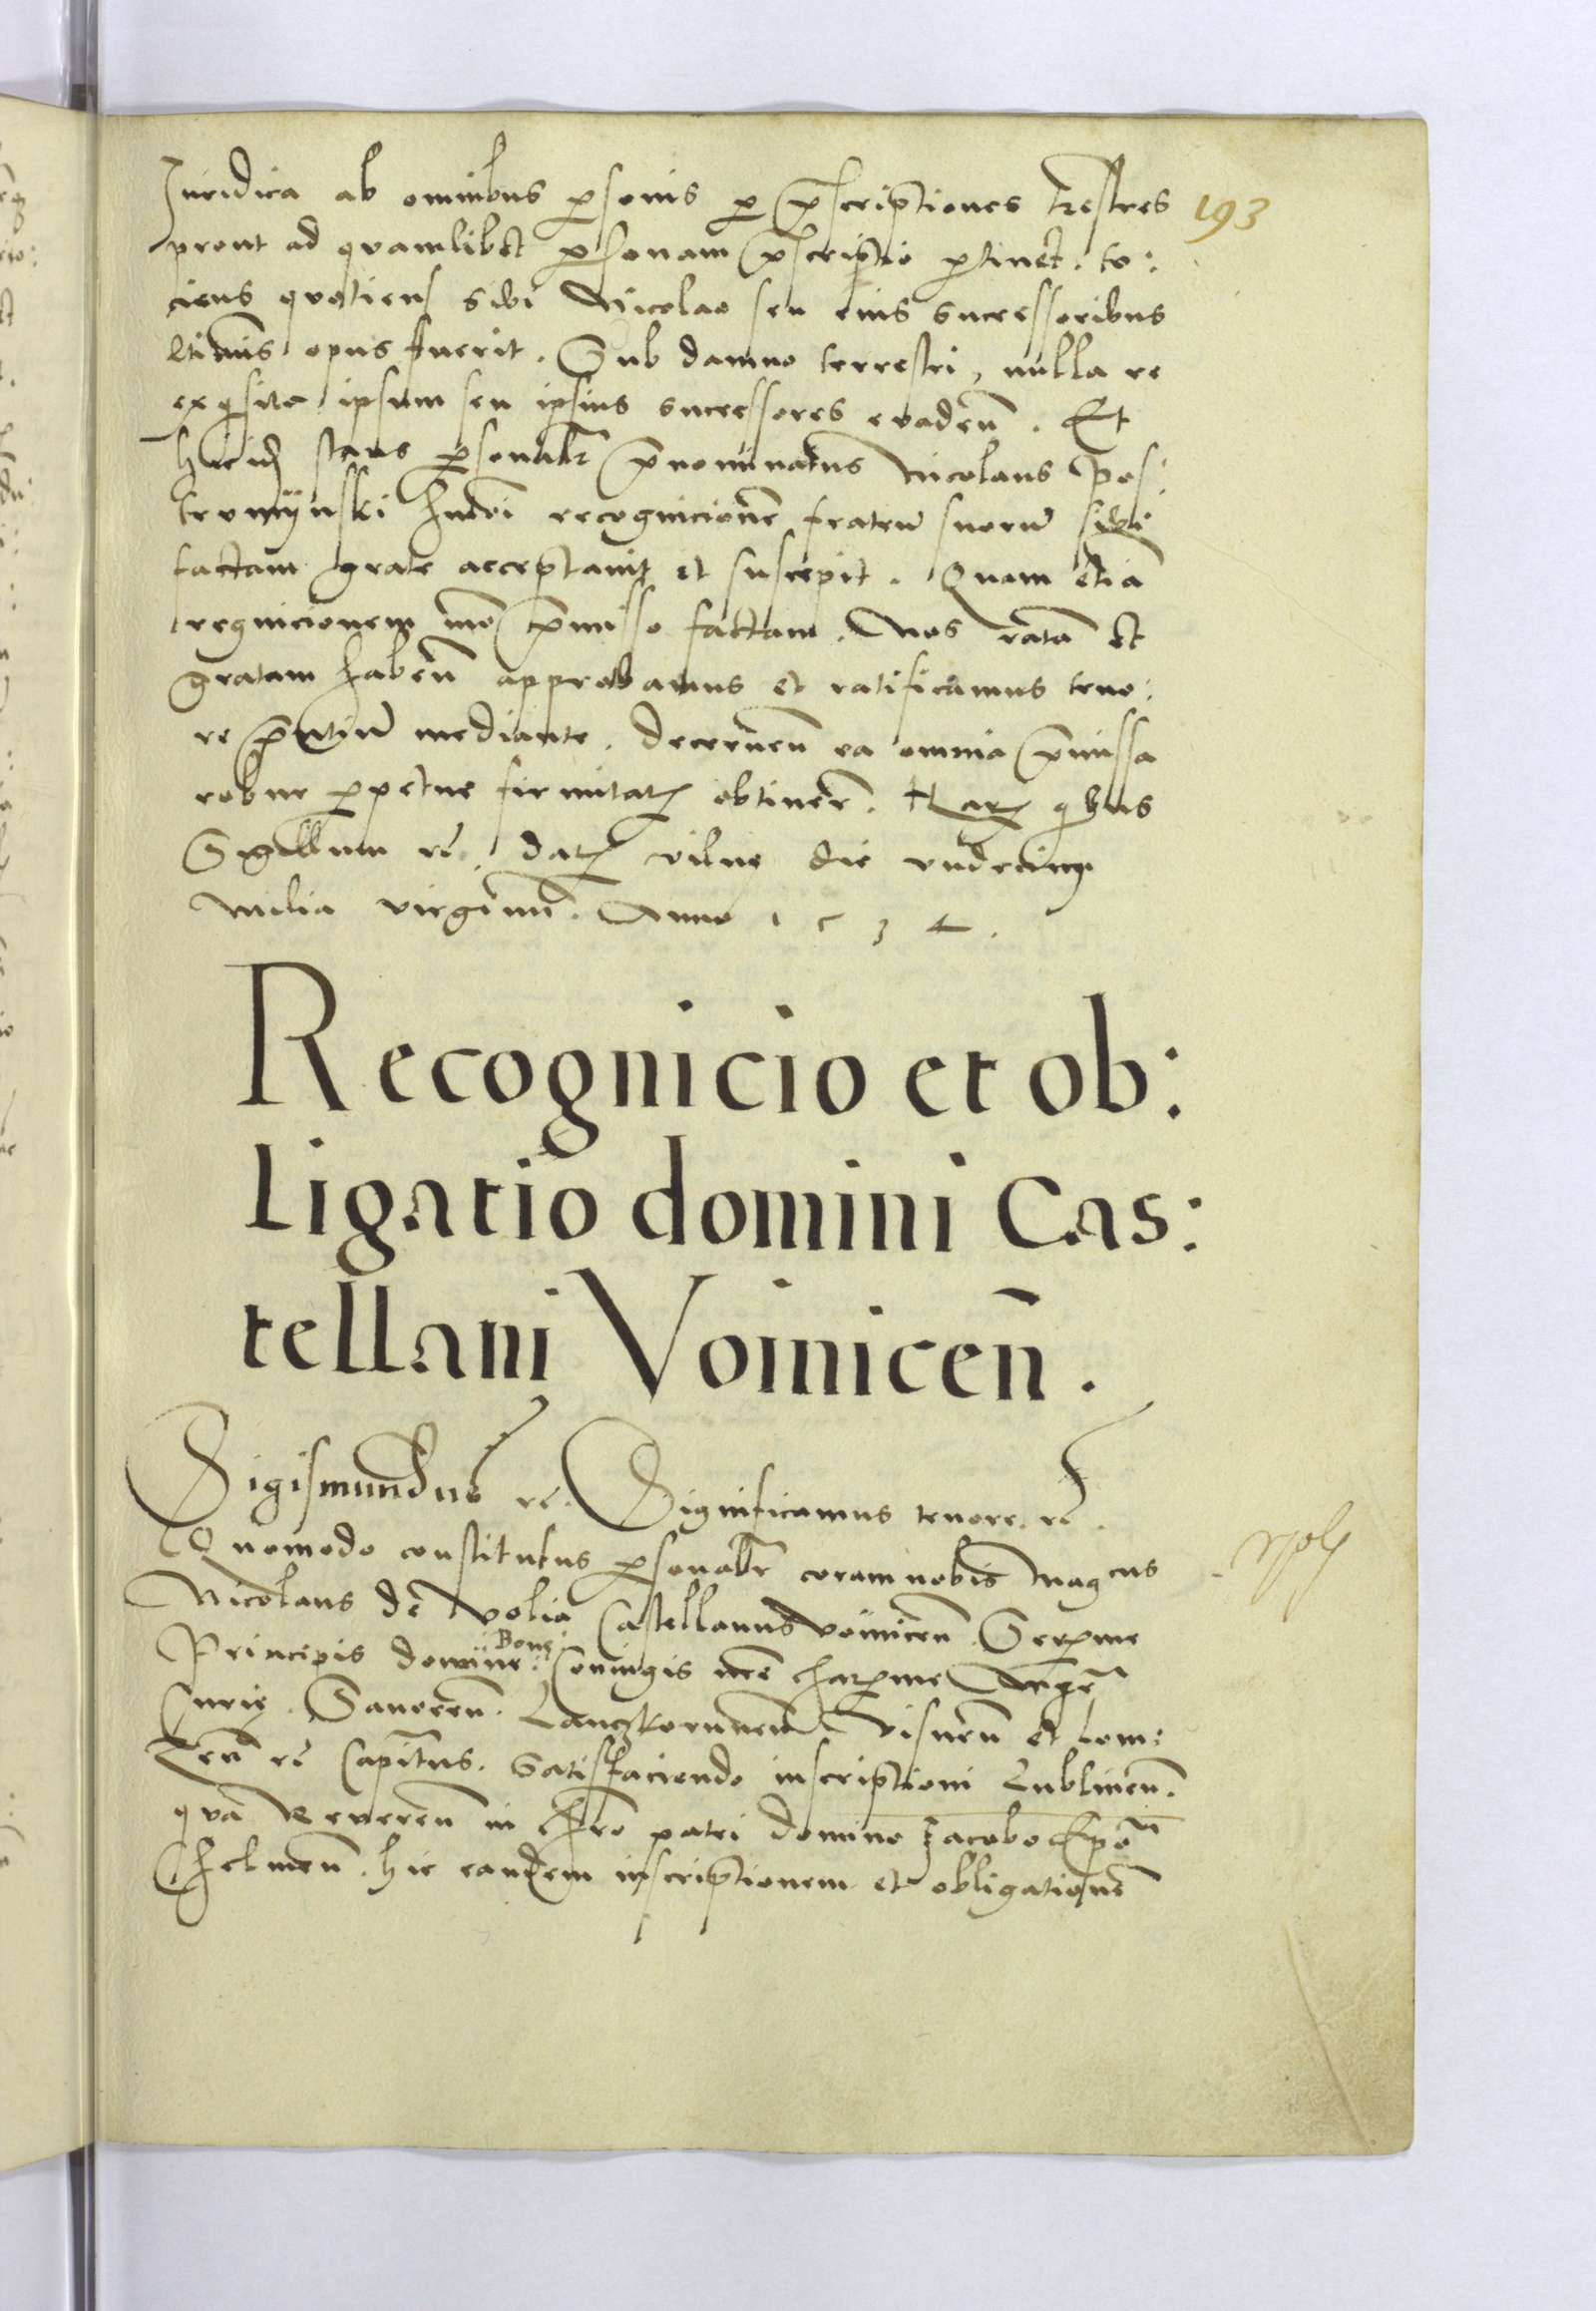 Iuridica ab omnibus p̱sonis p̱ p̄scriptiones t̄restres
193
prout ad quamlibet p̱sonam p̄scriptio p̱tinet. to:
ciens quotiens sibi Nicolao seu eius successoribus
l̄timis opus fuerit. Sub damno terrestri, nulla re
exq̄sita ipsum seu ipsius successores euaden̄. Et
hic stans p̱sonalr̄ p̄nominatus Nicolaus Pos:
tromÿnski hm̄oi recognicionē fratrū suorū sibi
factam grate acceptauit et suscepit. Quam etiā
regnicionem mō p̄misso factam. Nos ratā et
gratam haben̄ approbamus et ratificamus teno:
re p̄ntiū mediante. decernen̄ ea omnia p̄missa
robur p̱petue firmitatꝭ obtinere. Harꝭ q̄bus
Sigillum rc̄. datꝭ vilne die vndecim
milia virginū. Anno 1 5 3 4.
Recognicio et ob:
ligatio domini Cas:
tellani Voinicen̄.
Sigismundus rc̄. Significamus tenore. rc̄.
Quomodo constitutus p̱sonalr̄ coram nobis Mag cus
Nicolaus de volia Castellanus voinicen̄. Serꝭme
Bone
Principis domine: Coniugis nr̄e charꝭme Mgr̄
Curie. Sanocen̄. Lanczkorunen̄ Visnen̄ et Lom:
zen̄ rc̄ Capitn̄us. Satisfaciendo inscriptioni Lublinen̄.
quā Reueren̄ in chrō patri domino Iacobo Ep̄o
Chelmen̄. hic eandem inscriptionem et obligationē